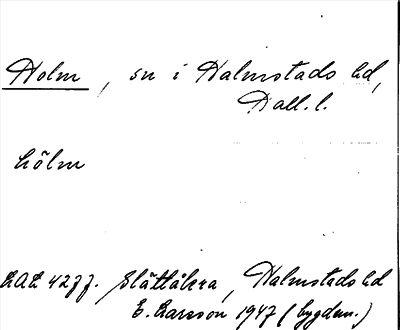 Holm, sn i Halmstads hd,
Hall. l.
hölm
Slättåkra, Halmstads hd
E. Larsson 1947 (bygdem.)